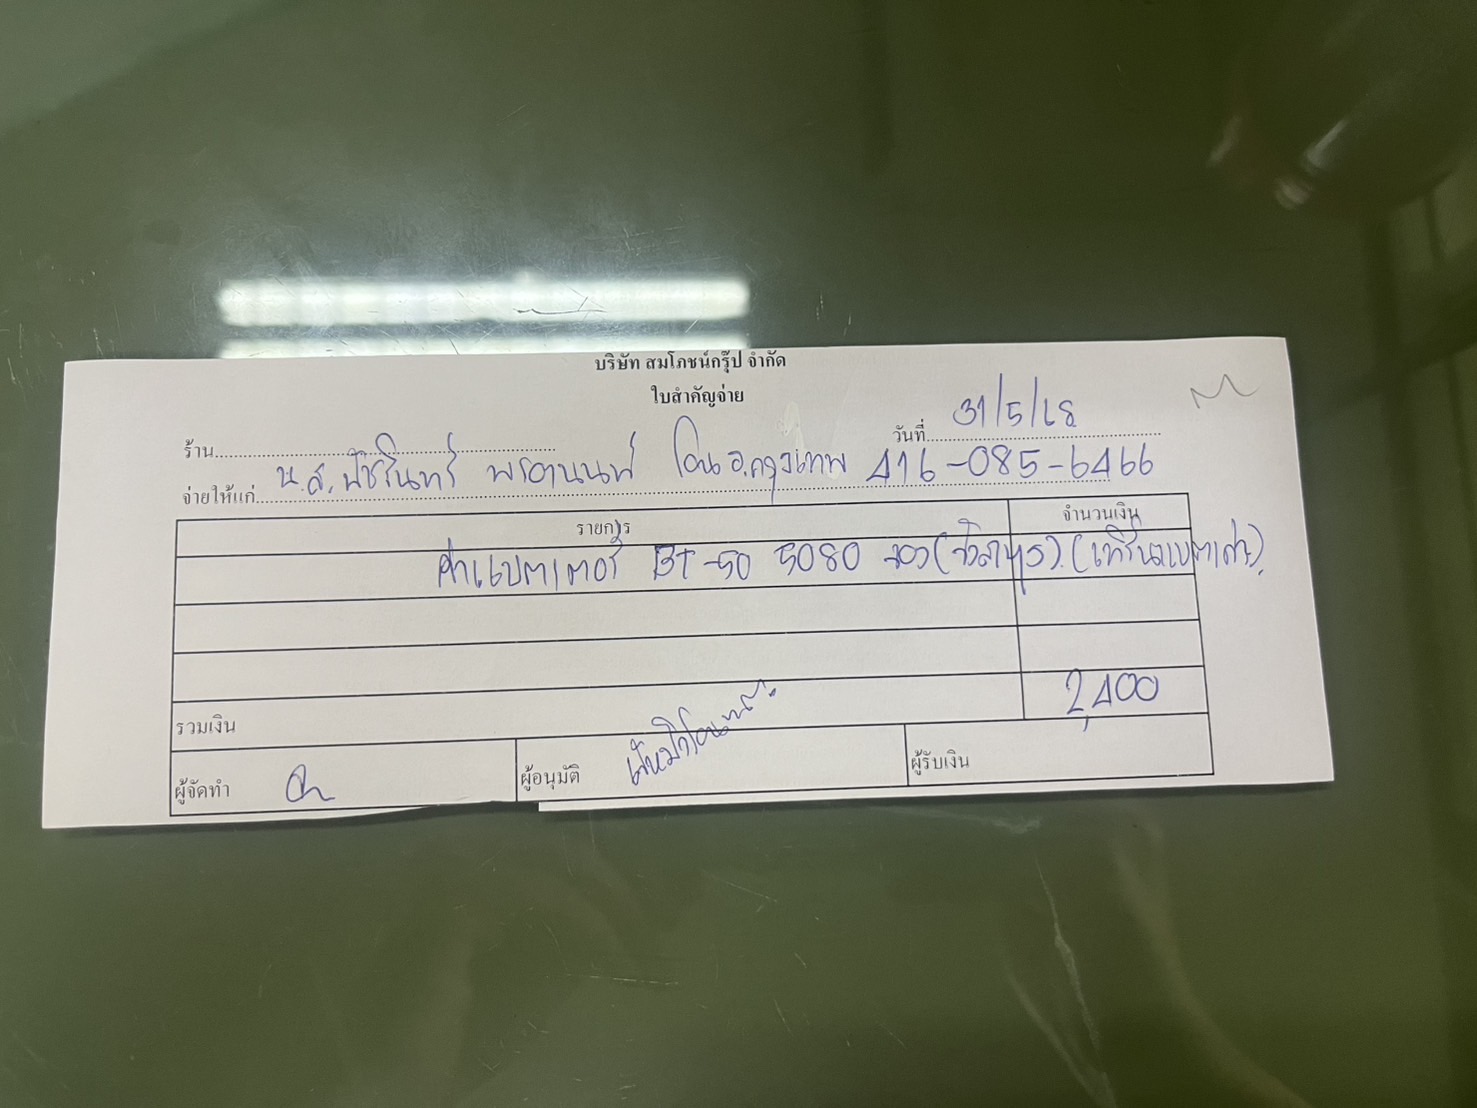 บริษัท สมโภชน์กรุ๊ป จำกัด
ใบสำคัญจ่าย
ร้าน วันที่ 31/5/68
จ่ายให้แก่ น.ส. พัชรินทร์ พรอานนท์ โอน ธ.กรุงเทพ 416-085-6466
รายการ จำนวนเงิน
ค่าแบตเตอรี่ BT-50 5080 (เทิร์นแบตเก่า)
รวมเงิน 2,400
ผู้จัดทำ ผู้อนุมัติ ผู้รับเงิน